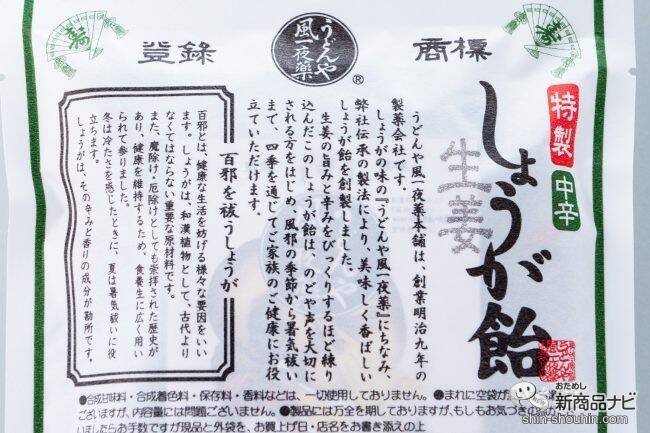 登録
うどんや
風一夜薬
®
商標
特製
中辛
しょうが飴
生姜
うどんや風一夜薬本舗は、創業明治九年の
製薬会社です。
しょうがの味の『うどんや風一夜薬』にちなみ、
弊社伝承の製法により、美味しく香ばしい
しょうが飴を創製しました。
生姜の旨みと辛みをびっくりするほど練り
込んだこのしょうが飴は、のどや声を大切に
される方をはじめ、風邪の季節から暑気祓い
まで、四季を通じてご家族のご健康にお役
立ていただけます。
百邪を祓うしょうが
百邪とは、健康な生活を妨げる様々な要因をいい
ます。しょうがは、和漢植物として、古代より
なくてはならない重要な原材料です。
また、魔除け・厄除けとしても崇拝された歴史が
あり、健康を維持するため、食養生に広く用い
られて参りました。
冬は冷たさを感じたときに、夏は暑気祓いに役
立ちます。
しょうがは、その辛みと香りの成分が勘所です。
●合成甘味料・合成着色料・保存料・香料などは、一切使用しておりません。●まれに空袋が
ございますが、内容量には問題ございません。●製品には万全を期しておりますが、もしもお気づきの
いましたらお手数ですが現品と外袋を、お買上げ日・店名をお書き添えの上
おためし
新商品ナビ
shin-shouhin.com